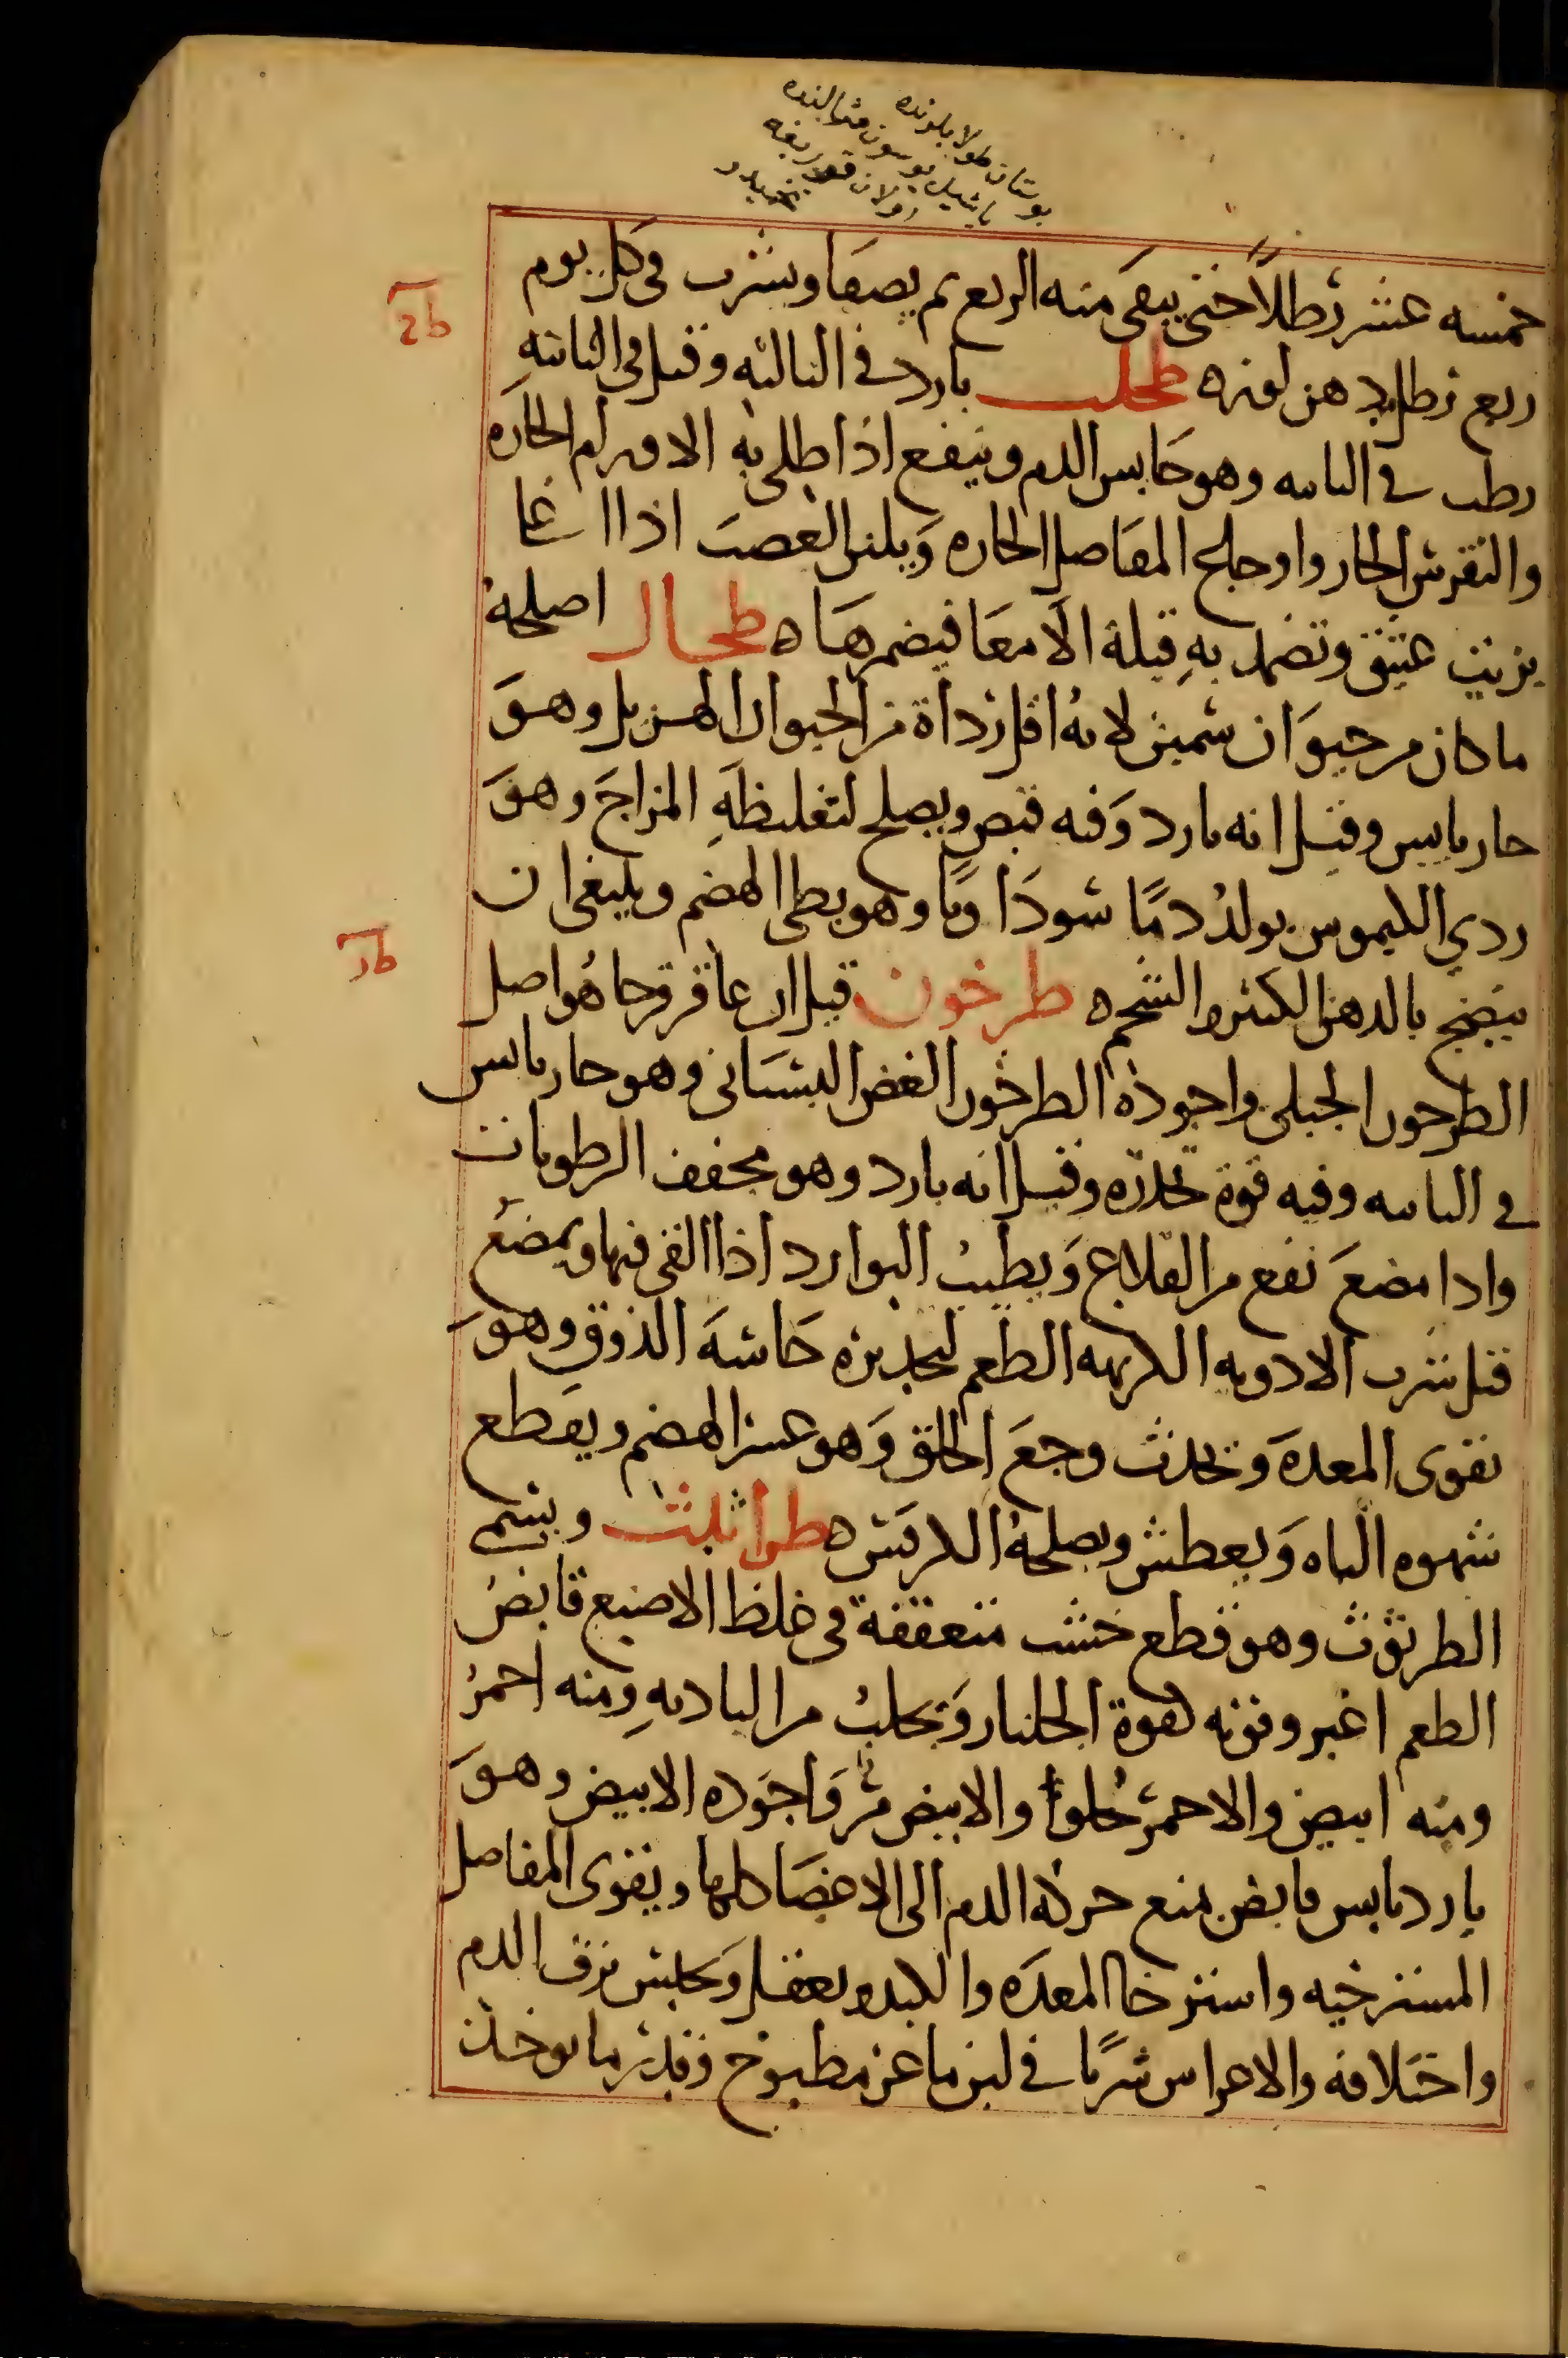 خمسه عشر رطلاً حتى يبقى منه الربع ثم يصفا ويشرب فى كل يوم
ربع رطل بدهن لوز ه طحلب بارد فى الثالثه وقيل فى الثانيه
رطب فى الثانيه وهو حابس الدم وينفع اذا طلى به الاورام الحاره
والنقرس الحار واوجاع المفاصل الحاره ويلين العصب اذا اغلى
بزيت عتيق وتضمد به قيلة الامعا فيضمرها ه طحال اصلحه
ما كان من حيوان سمين لانه اقل رداة من الحيوان الهزيل وهو
حار يابس وقيل انه بارد وفيه قبض ويصلح لتغليظه المزاج وهو
ردي الكيموس يولد دمًا سوداويًا وهو بطى الهضم وينبغى ان
ينضج بالدهن الكثير والشحم ه طرخون قيل ان عاقرقرحا هو اصل
الطرخون الجبلى واجوده الطرخون الغض البستانى وهو حار يابس
فى الثانيه وفيه قوة مخدره وقيل انه بارد وهو مجفف الرطوبات
واذا مضغ نفع من القلاع ويطيب البوارد اذا القى فيها ويمضغ
قبل شرب الادويه الكريهه الطعم لتخديره حاسة الذوق وهو
يقوى المعدة ويحدث وجع الحلق وهو عسر الهضم ويقطع
شهوه الباه ويعطش ويصلحه الكرفس ه طراثيث ويسمى
الطرثوث وهو قطع خشب متعقفة فى غلظ الاصبع قابض
الطعم اغبر وقوته كقوة الجلنار ويجلب من الباديه ومنه احمر
ومنه ابيض والاحمر حلو والابيض مر واجوده الابيض وهو
بارد يابس قابض يمنع حركه الدم الى الاعضا كلها ويقوى المفاصل
المسترخيه واسترخا المعده والكبد ويعقل ويحبس نزف الدم
واختلافه والاعراس شربًا فى لبن ماعز مطبوخ وقدر ما يوخذ